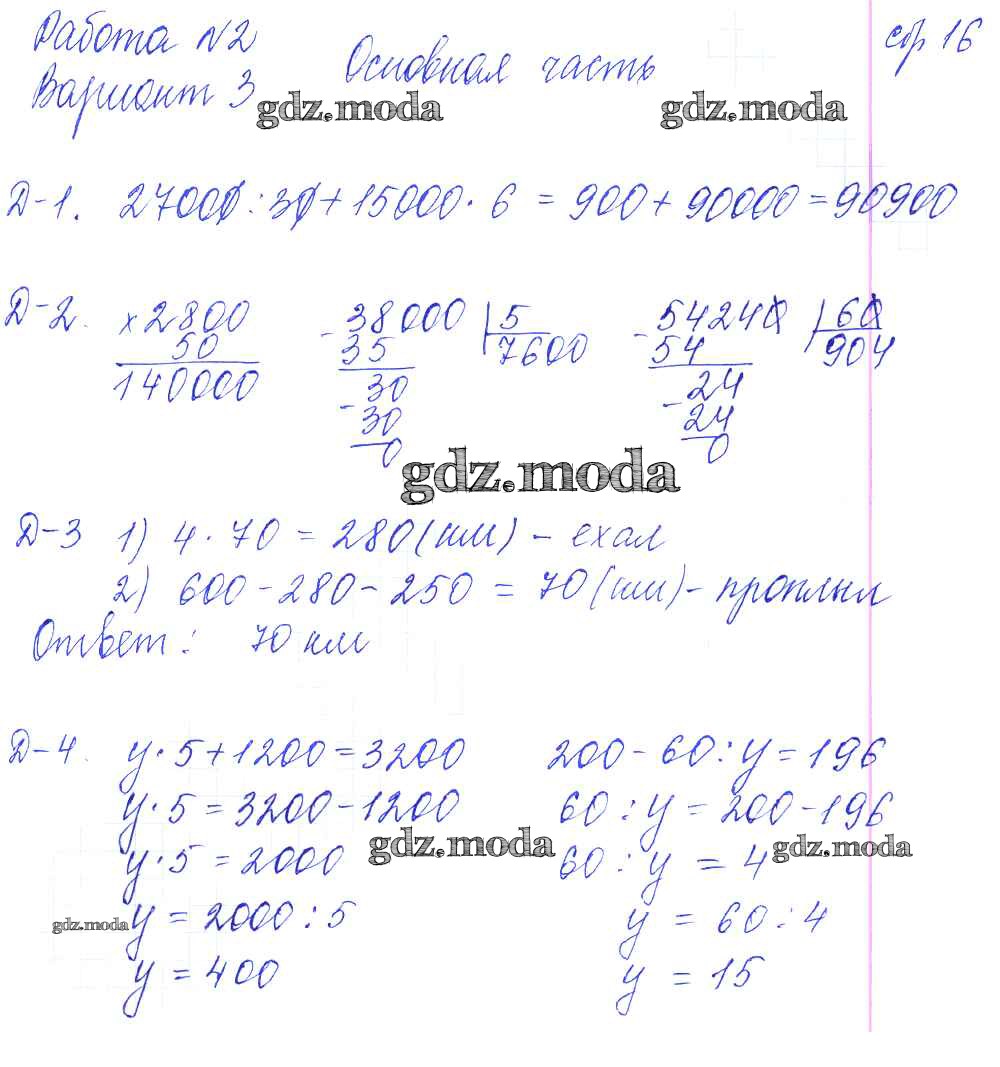 Работа №2 стр 16
Вариант 3 Основная часть
gdz.moda gdz.moda
Д-1. 27000:30+15000·6 = 900+90000=90900
Д-2. ×2800 -38000 5 -54240 60
50 35 7600 54 904
140000 30 24
-30 -24
0 0
gdz.moda
Д-3 1) 4·70 = 280(км) - ехал
2) 600-280-250 = 70(км) - проплыл
Ответ: 70 км
Д-4. y·5+1200=3200 200-60:y=196
y·5=3200-1200 60:y=200-196
gdz.moda gdz.moda
y·5=2000 60:y = 4
gdz.moda
y = 2000:5 y = 60:4
y = 400 y = 15